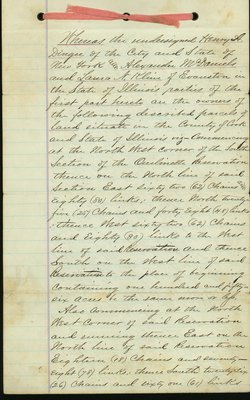 Whereas the undersigned Henry S.
of the City and State of
New York & Alexander McDaniel
and Laura A. Kline of Evanston in
the State of Illinois parties of the
first part herein are the owners of
the following described parcels of
land situate in the County of Cook
and State of Illinois viz. Commencing
at the North West corner of the
Section of the Ouilmette Reservation
thence on the North line of said
Section East sixty two (62) Chains &
eighty (80) links; thence North twenty
five (25) Chains and forty eight (48) links
; thence West sixty two (62) Chains
and Eighty (80) links to the West
line of said Reservation and thence
South on the West line of said
Reservation to the place of beginning
containing one hundred and fifty-
six acres be the same more or less.
Also Commencing at the North
West Corner of said Reservation
and running thence East on the
North line of said Reservation
Eighteen (18) Chains and seventy-
eight (78) links; thence South twenty six
(26) Chains and sixty one (61) links